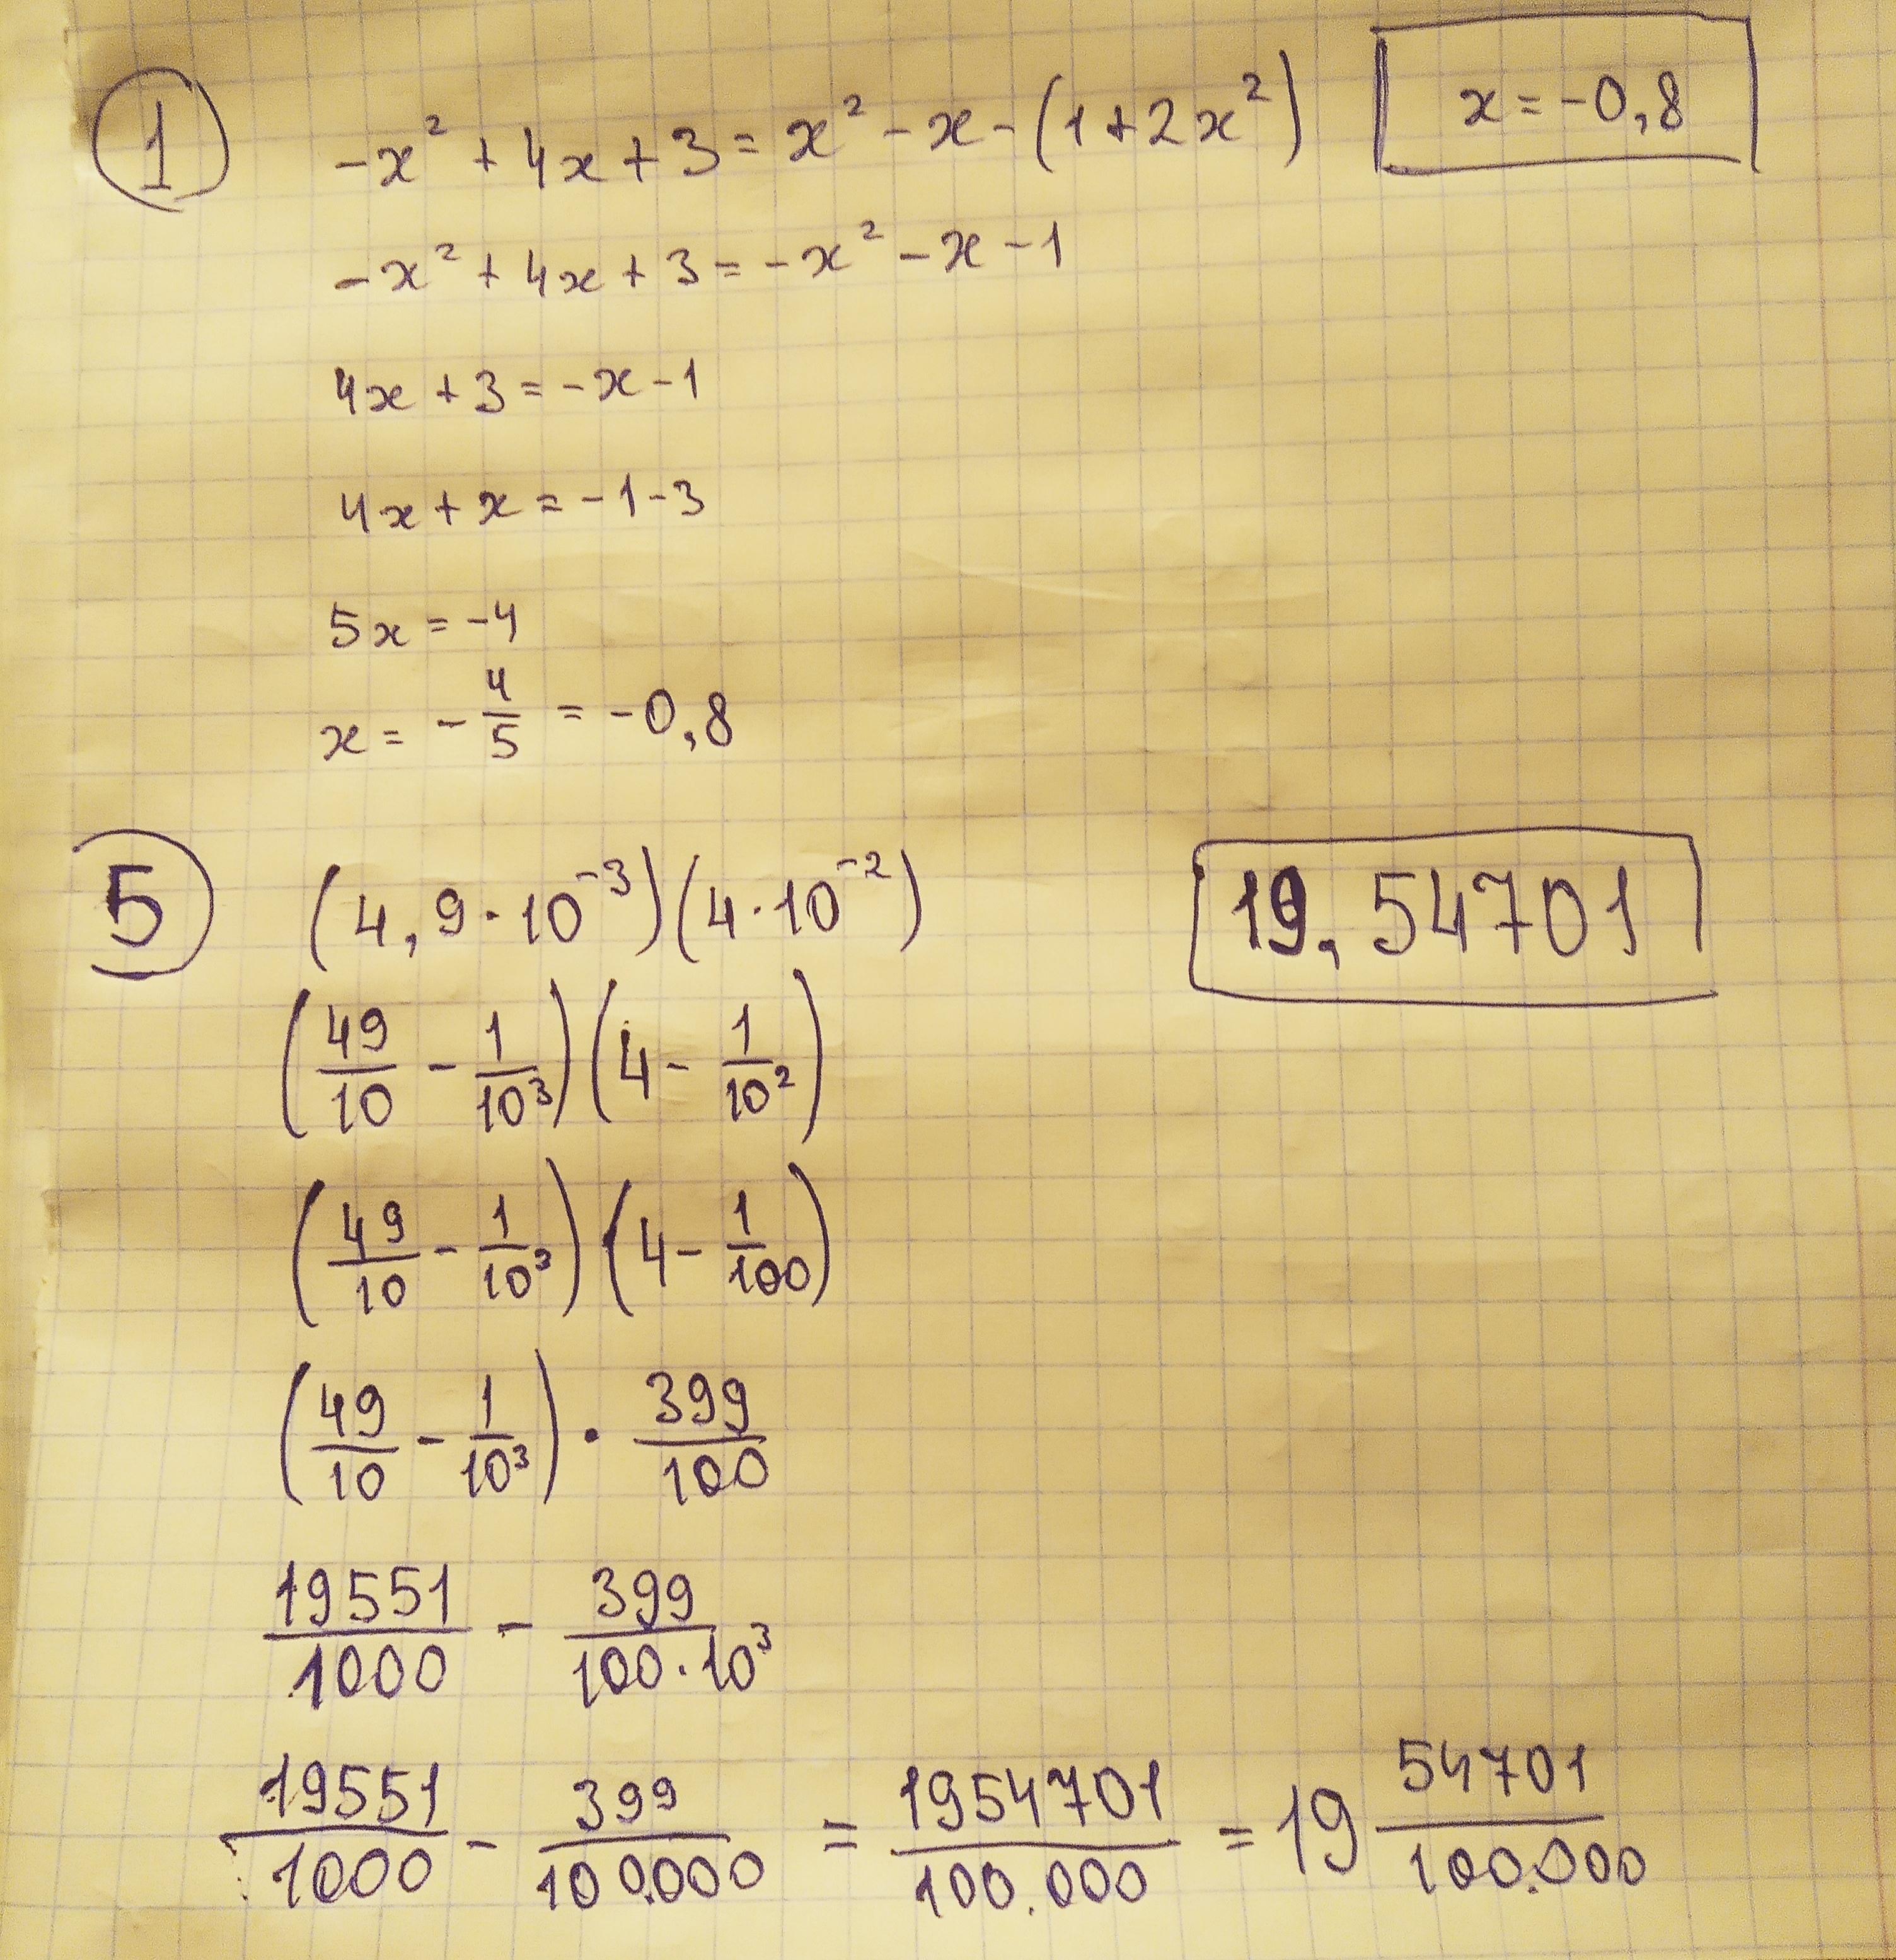 1 -x² + 4x + 3 = x² - x - (1 + 2x²) x = -0,8
-x² + 4x + 3 = -x² - x - 1
4x + 3 = -x - 1
4x + x = -1 - 3
5x = -4
x = -4/5 = -0,8
5 (4,9 · 10⁻³)(4 · 10⁻²) 19,54701
(49/10 - 1/10³)(4 - 1/10²)
(49/10 - 1/10³)(4 - 1/100)
(49/10 - 1/10³) · 399/100
19551/1000 - 399/100·10³
19551/1000 - 399/100.000 = 1954701/100.000 = 19 54701/100.000